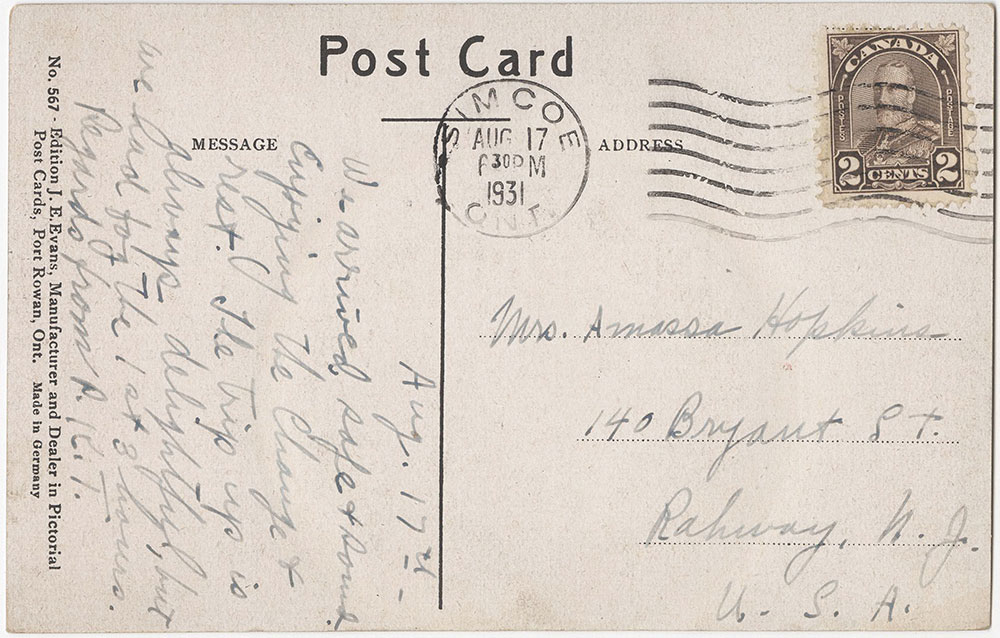 Post Card
MESSAGE
ADDRESS
SIMCOE
AUG 17
630 PM
1931
ONT.
CANADA
POSTES
POSTAGE
2 CENTS 2
Aug. 17th -
We arrived safe & sound.
Enjoying the change &
rest. The trip up is
always delightful, but
we had fog the 1st 3 hours.
Regards from R. K. T.
Mrs. Amassa Hopkins
140 Bryant St.
Rahway, N. J.
U. S. A.
No. 567 - Edition J. E. Evans, Manufacturer and Dealer in Pictorial
Post Cards, Port Rowan, Ont. Made in Germany